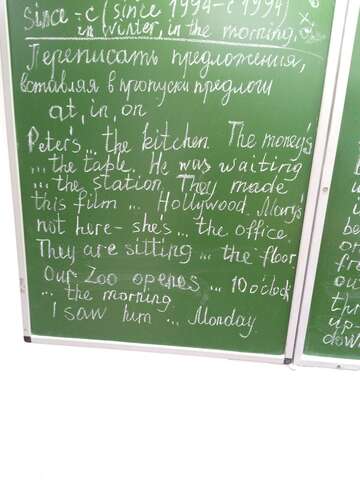 Since = с (since 1994 – с 1994)
in winter, in the morning,
Переписать предложения,
вставляя в пропуски предлоги
at, in, on
Peter's ... the kitchen. The money's
... the table. He was waiting
... the station. They made
this film ... Hollywood. Mary's
not here – she's ... the office.
They are sitting ... the floor.
Our Zoo openes ... 10 o'clock
... the morning.
I saw him ... Monday.